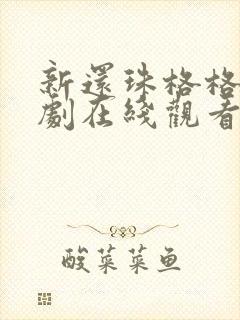 新還珠格格
劇在綫觀看
酸菜菜鱼